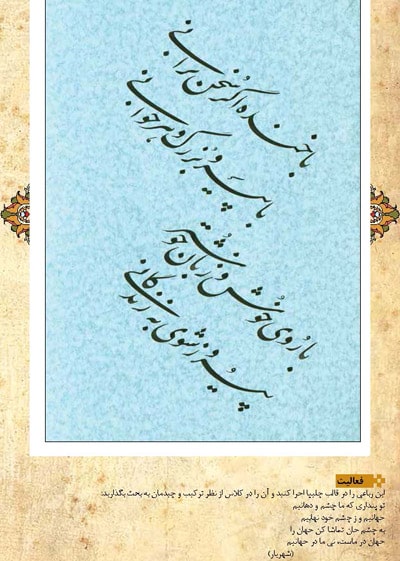 با خنده اگر سخن برانی
با پیر و بزرگ و هر جوانی
با روی خوش و زبان خوشتر
پیروز شوی به زندگانی
فعالیت
این رباعی را در قالب چلیپا اجرا کنید و آن را در کلاس از نظر ترکیب و چیدمان به بحث بگذارید:
تو پنداری که ما چشم و دهانیم
جهانیم و ز چشم خود نهانیم
به چشم جان تماشا کن جهان را
جهان در ماست، نی ما در جهانیم
(شهریار)